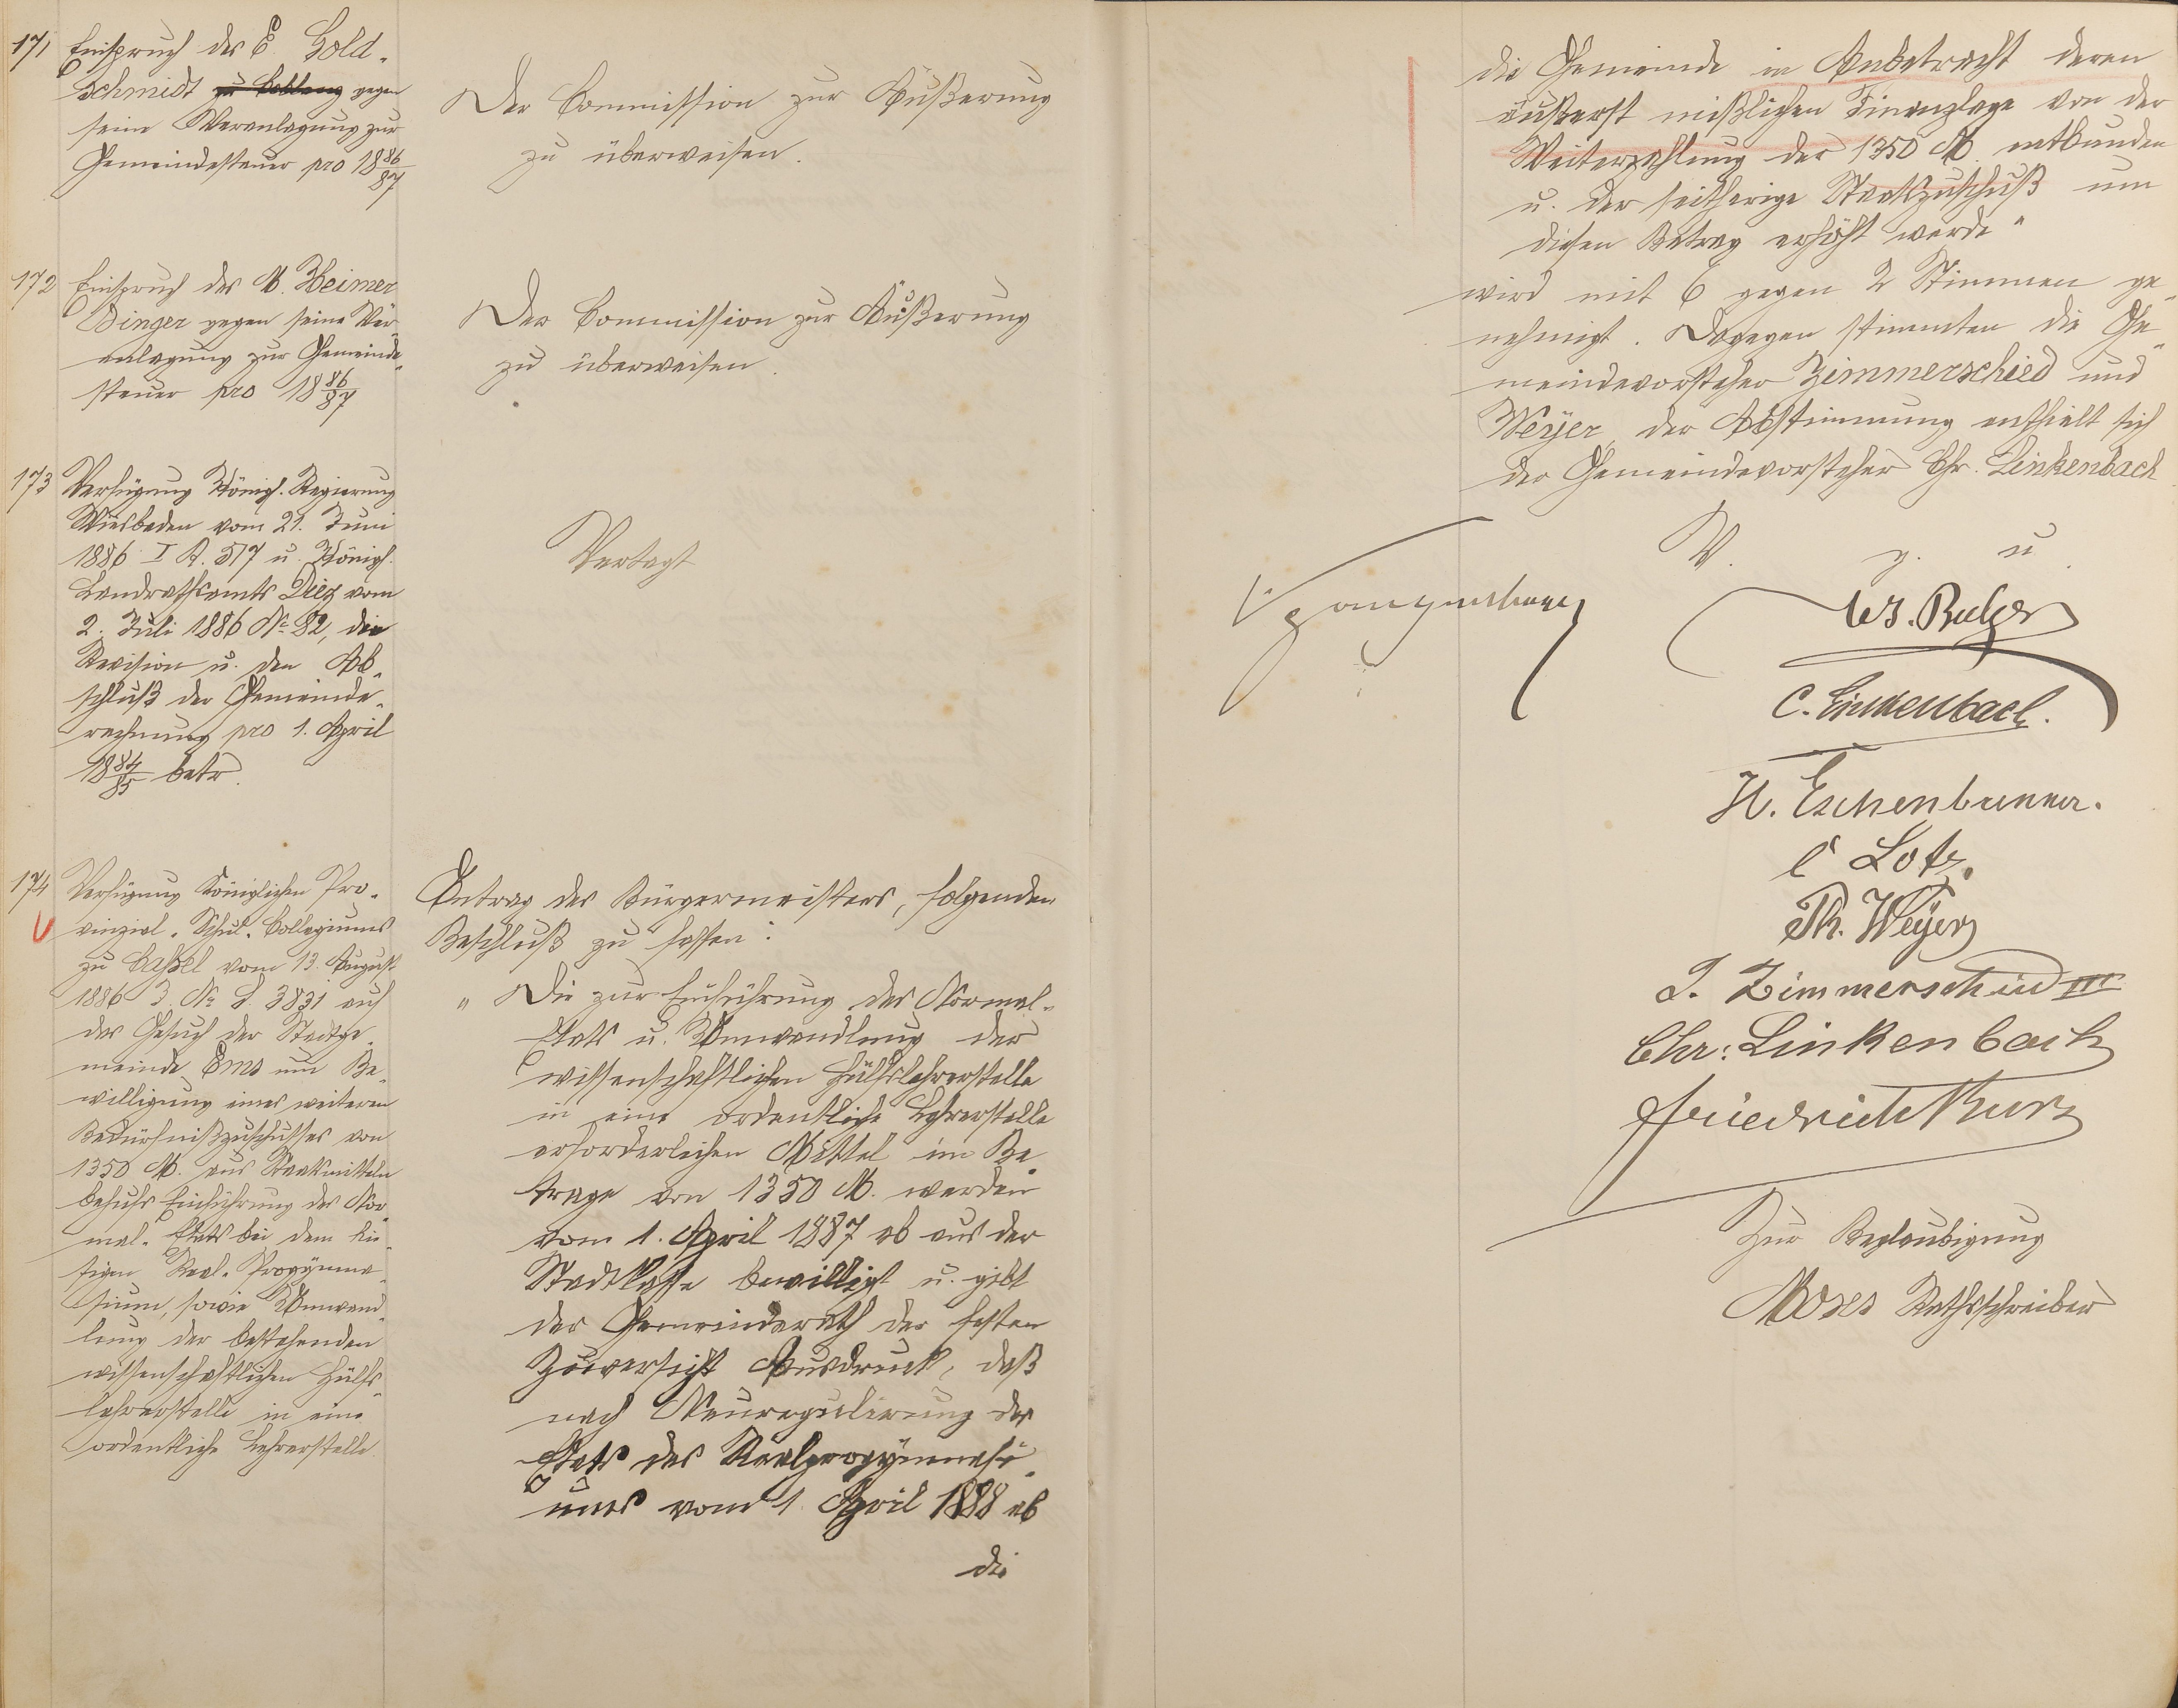 171 Einspruch des E. Gold-
schmidt zu Coblenz gegen
seine Veranlagung zur
Gemeindesteuer pro 1886/87
Der Commission zur Äußerung
zu überweisen.
172 Einspruch des M. Heimer
Dinger gegen seine Ver-
anlagung zur Gemeinde-
steuer pro 1886/87
Der Commission zur Äußerung
zu überweisen.
173 Verfügung Königl. Regierung
Wiesbaden vom 21. Juni
1886 I A. 517 u. Königl.
Landrathsamts Diez vom
2. Juli 1886 No 82, die
Revision u. den Ab-
schluß der Gemeinde-
rechnung pro 1. April
1884/85 betr.
Vertagt
174 Verfügung Königlichen Pro-
vinzial-Schul-Collegiums
zu Cassel vom 13. August
1886 J. No S. 3831 auf
das Gesuch der Stadtge-
meinde Ems um Be-
willigung eines weiteren
Bedürfnißzuschusses von
1350 M. aus Staatsmitteln
behufs Einführung des Nor-
mal-Etats bei dem hie-
sigen Real-Progymna-
sium, sowie Umwand-
lung der bestehenden
wissenschaftlichen Hülfs-
lehrerstelle in eine
ordentliche Lehrerstelle.
Antrag des Bürgermeisters, folgenden
Beschluß zu fassen:
„Die zur Einführung des Normal-
Etats u. Umwandlung der
wissenschaftlichen Hülfslehrerstelle
in eine ordentliche Lehrerstelle
erforderlichen Mittel im Be-
trage von 1350 M. werden
vom 1. April 1887 ab aus der
Stadtkasse bewilligt u. gibt
der Gemeinderath der festen
Zuversicht Ausdruck, daß
nach Neuregulirung des
Etats des Realprogymnasi-
ums vom 1. April 1888 ab
die
die Gemeinde in Anbetracht deren
äußerst mißlichen Finanzlage von der
Weiterzahlung der 1350 M. entbunden
u. der seitherige Staatszuschuß um
diesen Betrag erhöht werde"
wird mit 6 gegen 2 Stimmen ge-
nehmigt. Dagegen stimmten die Ge-
meindevorsteher Zimmerschied und
Weyer, der Abstimmung enthielt sich
der Gemeindevorsteher Chr. Linkenbach
V. g. u.
C. Linkenbach.
H. Eschenbrenner.
C Lotz.
Th. Weyer
J. Zimmerschied III
Chr: Linkenbach
Friedrich Kurz
Zur Beglaubigung
Moses Rathsschreiber